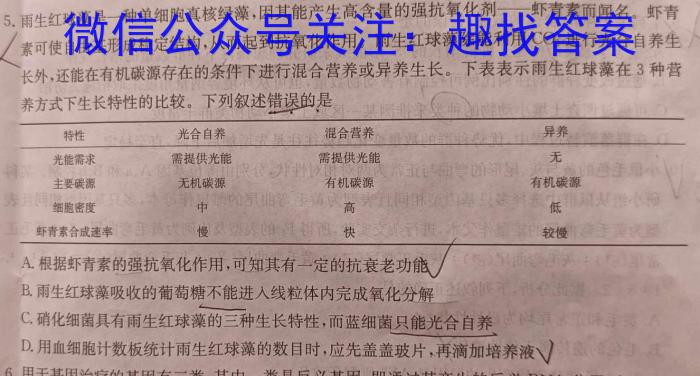 5. 雨生红球藻是一种单细胞真核绿藻,因其能产生高含量的强抗氧化剂——虾青素而闻名。虾青
微信公众号关注:趣找答案
素可使自由基形成稳定结构,从而起到抗氧化作用。雨生红球藻能利用CO₂进行光合自养生
长外,还能在有机碳源存在的条件下进行混合营养或异养生长。下表表示雨生红球藻在3种营
养方式下生长特性的比较。下列叙述错误的是
特性 光合自养 混合营养 异养
光能需求 需提供光能 需提供光能 无
主要碳源 无机碳源 有机碳源 有机碳源
细胞密度 中 高 低
虾青素合成速率 慢 快 较慢
A. 根据虾青素的强抗氧化作用,可知其有一定的抗衰老功能
B. 雨生红球藻吸收的葡萄糖不能进入线粒体内完成氧化分解
C. 硝化细菌具有雨生红球藻的三种生长特性,而蓝细菌只能光合自养
D. 用血细胞计数板统计雨生红球藻的数目时,应先盖盖玻片,再滴加培养液